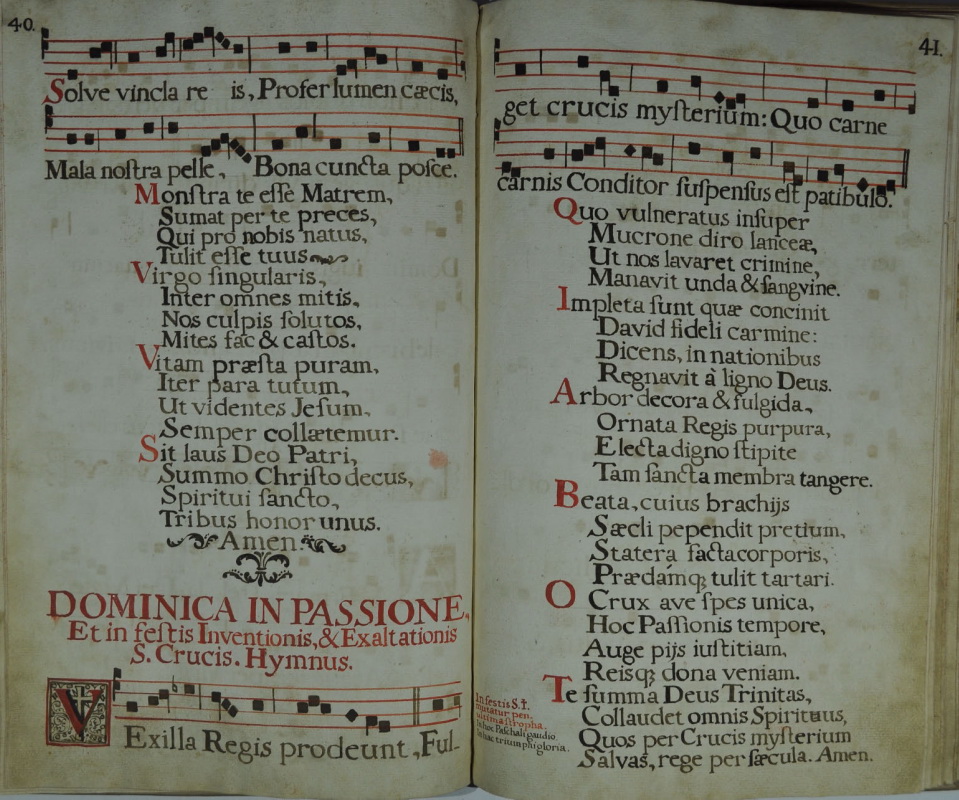 40.
Solve vincla re is, Profer lumen cæcis,
Mala noſtra pelle, Bona cuncta poſce.
Monſtra te eſſe Matrem,
Sumat per te preces,
Qui pro nobis natus,
Tulit eſſe tuus
Virgo ſingularis,
Inter omnes mitis,
Nos culpis ſolutos,
Mites fac & caſtos.
Vitam præſta puram,
Iter para tutum,
Ut videntes Jeſum,
Semper collætemur.
Sit laus Deo Patri,
Summo Chriſto decus,
Spiritui ſancto,
Tribus honor unus.
Amen.
DOMINICA IN PASSIONE,
Et in feſtis Inventionis, & Exaltationis
S. Crucis. Hymnus.
VExilla Regis prodeunt, Ful-
41.
get crucis myſterium: Quo carne
carnis Conditor ſuſpenſus eſt patibulo.
Quo vulneratus inſuper
Mucrone diro lanceæ,
Ut nos lavaret crimine,
Manavit unda & ſangvine.
Impleta ſunt quæ concinit
David fideli carmine:
Dicens, in nationibus
Regnavit à ligno Deus.
Arbor decora & fulgida,
Ornata Regis purpura,
Electa digno ſtipite
Tam ſancta membra tangere.
Beata, cuius brachijs
Sæcli pependit pretium,
Statera facta corporis,
Prædamq; tulit tartari.
O Crux ave ſpes unica,
Hoc Paſſionis tempore,
Auge pijs iuſtitiam,
Reisq; dona veniam.
Te ſumma Deus Trinitas,
Collaudet omnis Spirituus,
Quos per Crucis myſterium
Salvas, rege per ſæcula. Amen.
In feſtis S. †.
mutatur pen-
ultima ſtropha.
In hoc Paſchali gaudio.
In hac triumphi gloria.